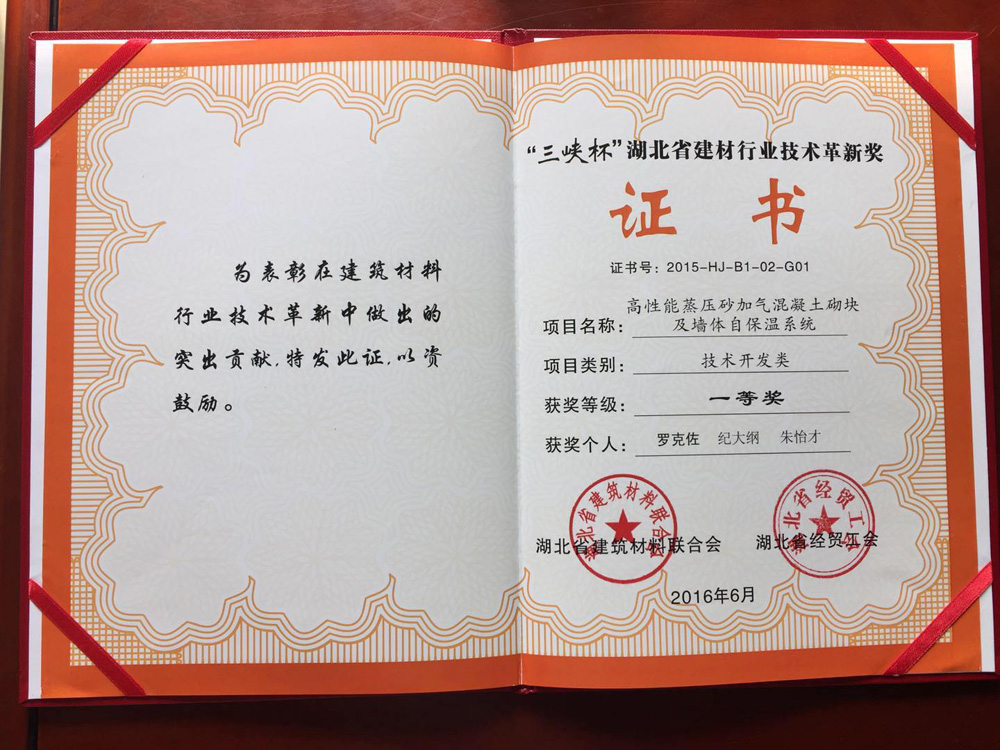 为表彰在建筑材料
行业技术革新中做出的
突出贡献,特发此证,以资
鼓励。
“三峡杯”湖北省建材行业技术革新奖
证 书
证书号：2015-HJ-B1-02-G01
高性能蒸压砂加气混凝土砌块
项目名称： 及墙体自保温系统
项目类别： 技术开发类
获奖等级： 一等奖
获奖个人： 罗克佐 纪大纲 朱怡才
湖北省建筑材料联合会
湖北省经贸工会
湖北省建筑材料联合会 湖北省经贸工会
2016年6月